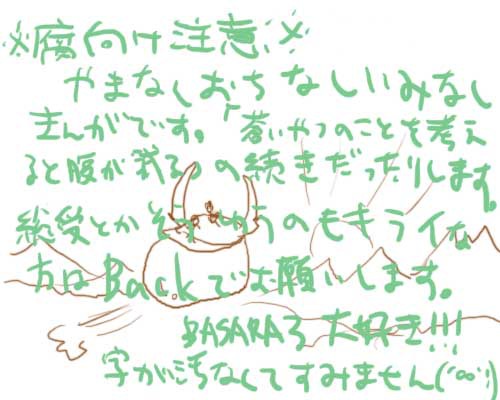 ※腐向け注意※
やまなしおちなしいみなし
まんがです。「蒼いやつのことを考え
ると腹が減る」の続きだったりします。
総受とかそういうのもキライな
方はBackでお願いします。
BASARA3大好き!!!
字が汚なくてすみません(´∞`;)